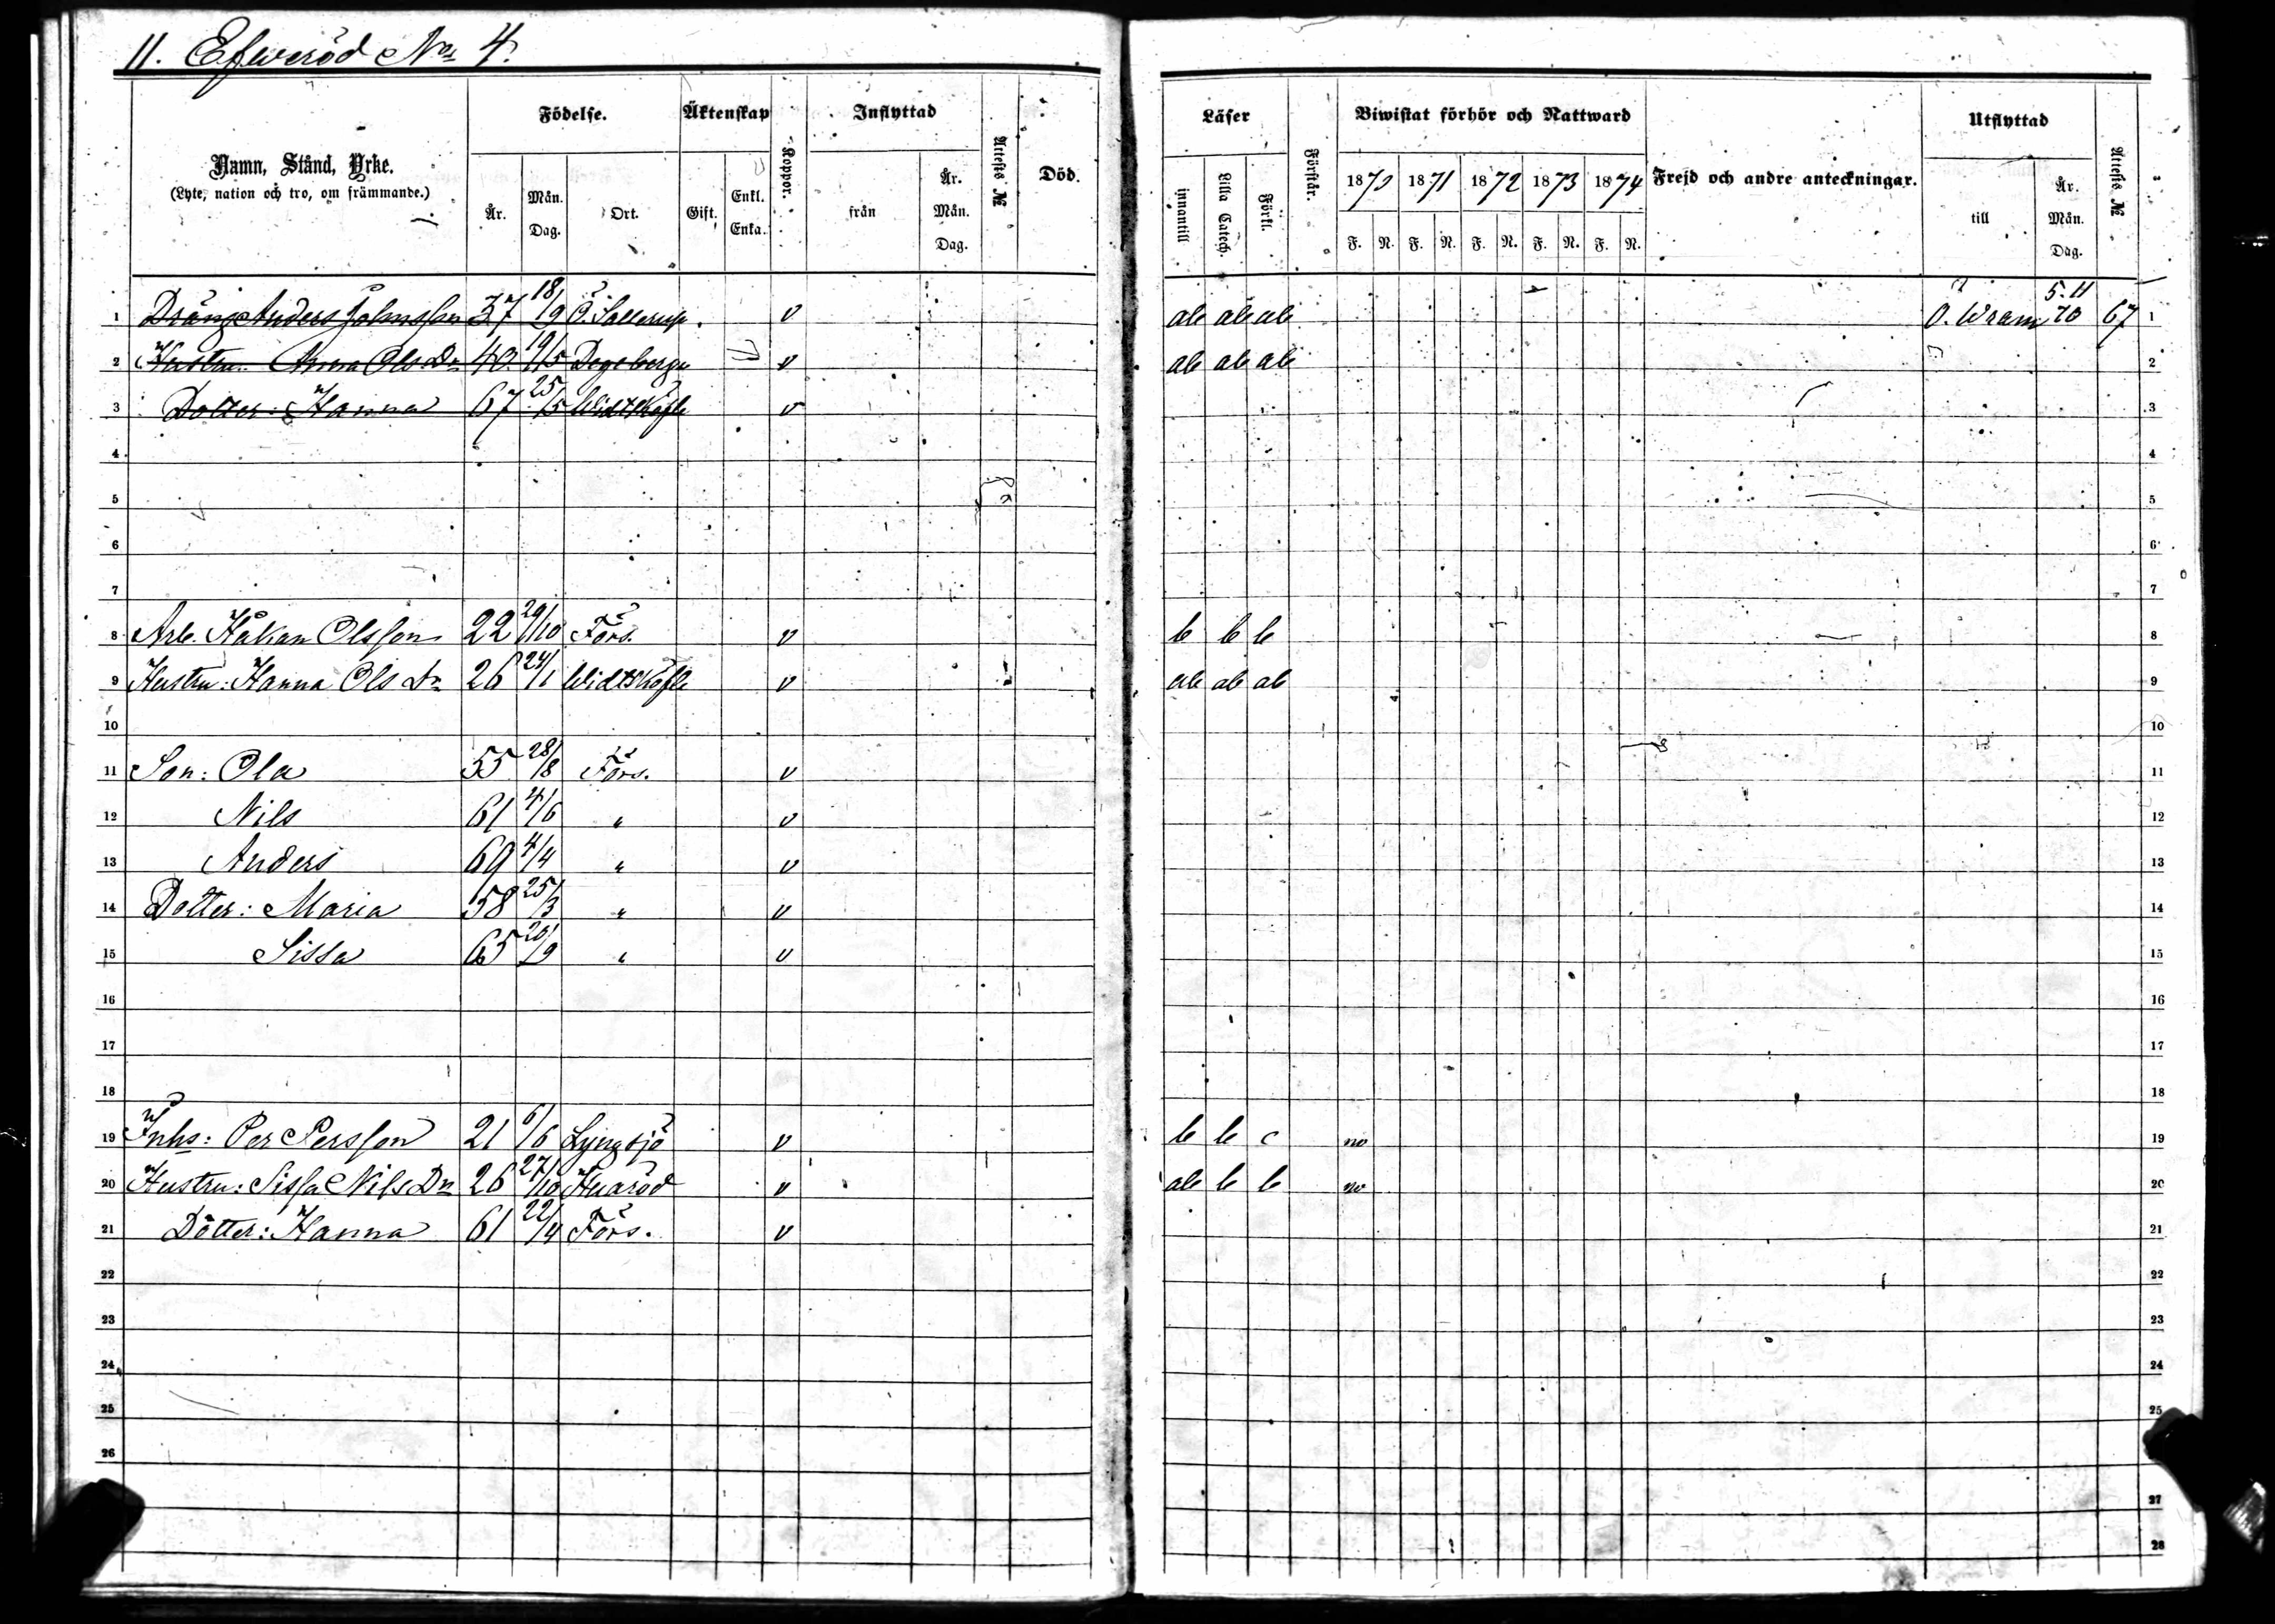 11. Efweröd No 4.
Namn, Stånd, Yrke.
(Lyte, nation och tro, om främmande.)
Födelse.
År.
Mån.
Dag.
Ort.
Äktenskap
Gift.
Enkl.
Enka.
Koppor.
Inflyttad
från
År.
Mån.
Dag.
Attests №
Död.
Läser
innantill
Lilla Catech.
Förkl.
Förstår.
Biwistat förhör och Nattward
1870 1871 1872 1873 1874
F. N. F. N. F. N. F. N. F. N.
Frejd och andre anteckningar.
Utflyttad
till
År.
Mån.
Dag.
Attests №
1 Dräng Anders Johnsson 37 18/9 Ö. Sallerup. v ab ab ab Ö. Wram 5.11 70 67 1
2 Hustru Anna Ols Dr 40 19/5 Degeberga v ab ab ab 2
3 Dotter: Hanna 67 25/5 Widtsköfle v 3
4 4
5 5
6 6
7 7
8 Arb. Håkan Olsson 22 29/10 Förs. v b b b 8
9 Hustru: Hanna Ols Dr 26 24/1 Widtsköfle v ab ab ab 9
10 10
11 Son: Ola 55 28/8 Förs. v 11
12 Nils 61 4/6 " v 12
13 Anders 69 4/4 " v 13
14 Dotter: Maria 58 25/3 " v 14
15 Sissa 65 20/9 " v 15
16 16
17 17
18 18
19 Inhs: Per Persson 21 6/6 Lyngsjö v b b c no 19
20 Hustru: Sissa Nils Dr 26 27/10 Huaröd v ab b b no 20
21 Dotter: Hanna 61 22/4 Förs. v 21
22 22
23 23
24 24
25 25
26
27
28